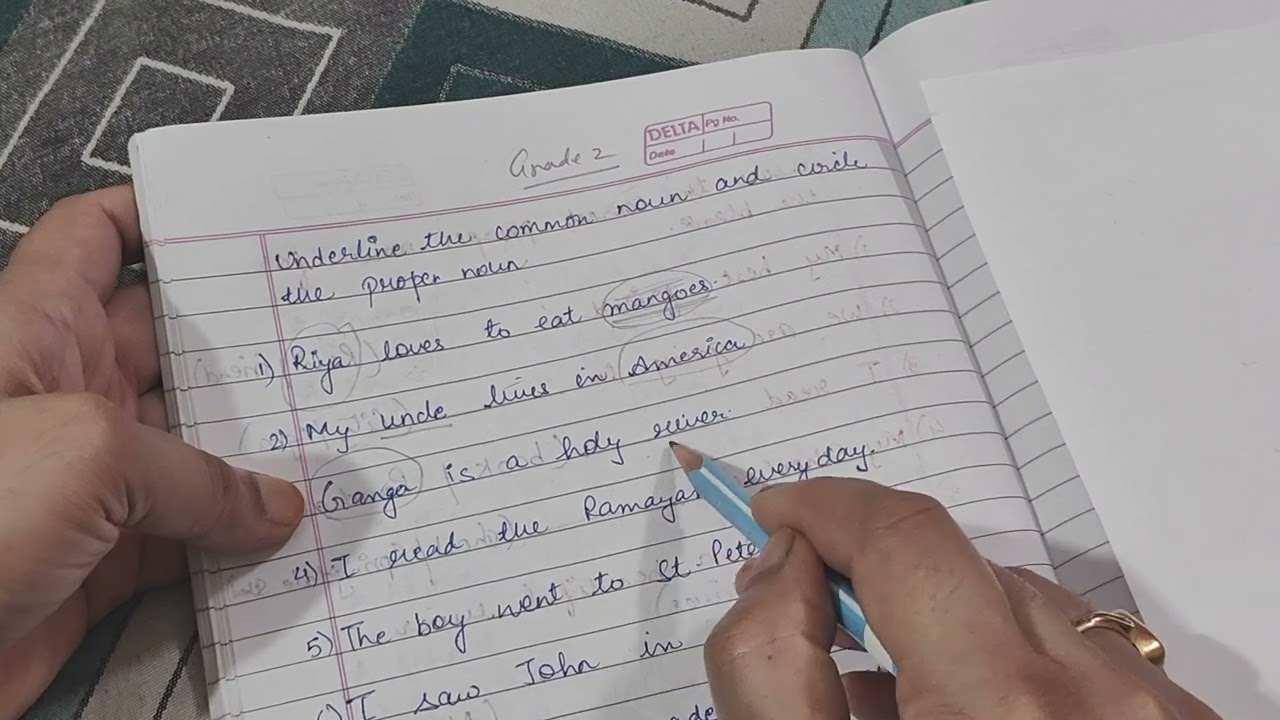 Grade 2
DELTA Pg No.
Date
Underline the common noun and circle
the proper noun
1) Riya loves to eat mangoes.
2) My uncle lives in America
Ganga is a holy river.
4) I read the everyday.
5) The boy went to St. 
I saw John in